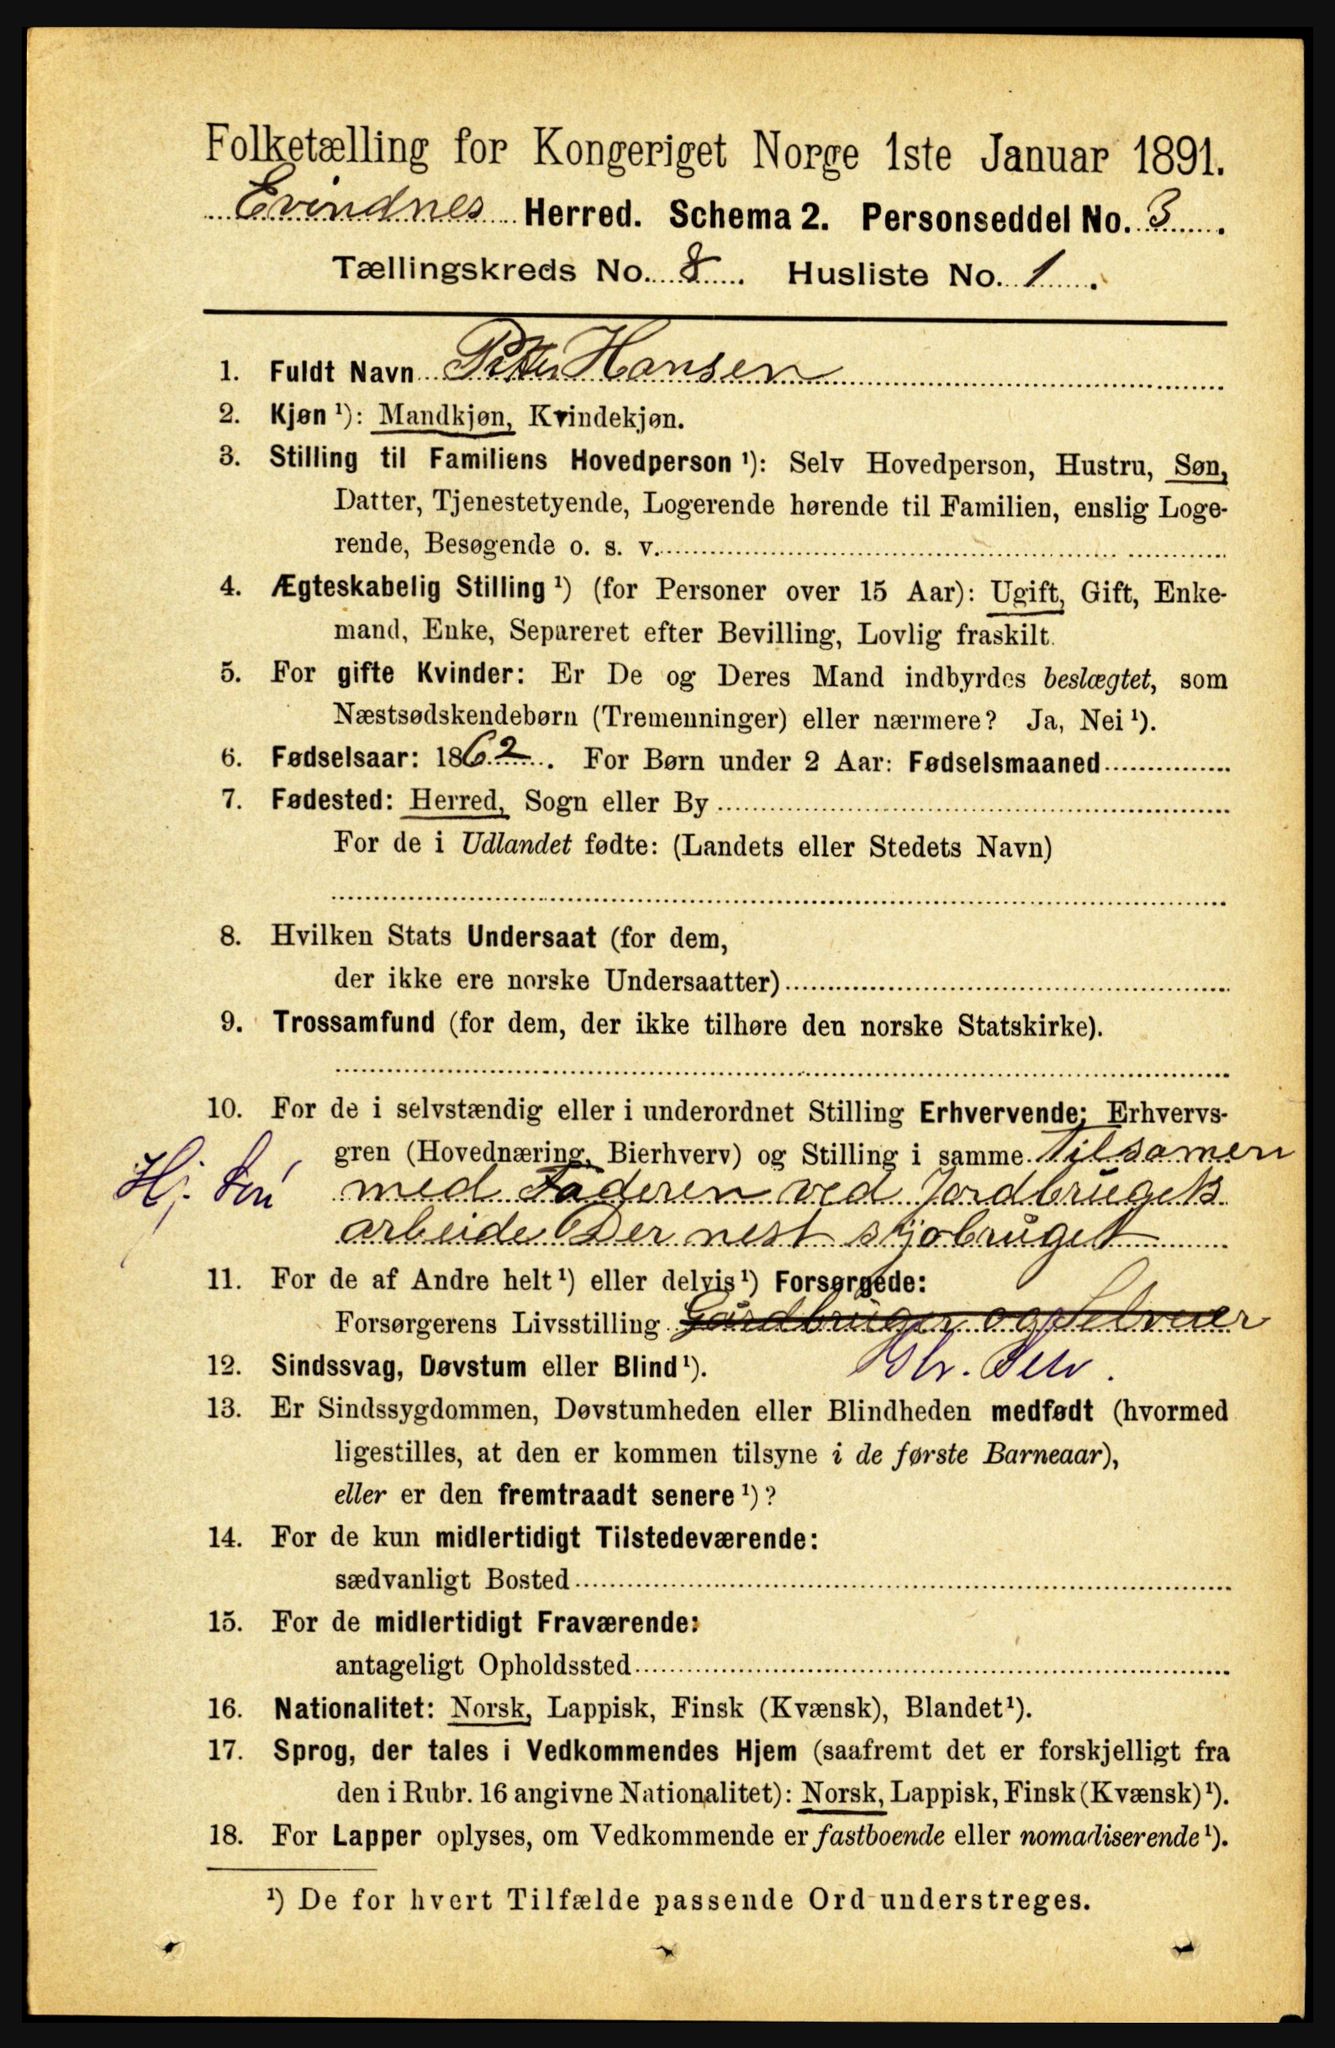 Folketælling for Kongeriget Norge 1ste Januar 1891.
Evindnes Herred. Schema 2. Personseddel No. 3
Tællingskreds No. 8. Husliste No. 1.
1. Fuldt Navn Petter Hansen
2. Kjøn ¹): Mandkjøn, Kvindekjøn.
3. Stilling til Familiens Hovedperson ¹): Selv Hovedperson, Hustru, Søn,
Datter, Tjenestetyende, Logerende hørende til Familien, enslig Loge-
rende, Besøgende o. s. v.
4. Ægteskabelig Stilling ¹) (for Personer over 15 Aar): Ugift, Gift, Enke-
mand, Enke, Separeret efter Bevilling, Lovlig fraskilt.
5. For gifte Kvinder: Er De og Deres Mand indbyrdes beslægtet, som
Næstsødskendebørn (Tremenninger) eller nærmere? Ja, Nei ¹).
6. Fødselsaar: 1862. For Børn under 2 Aar: Fødselsmaaned
7. Fødested: Herred, Sogn eller By
For de i Udlandet fødte: (Landets eller Stedets Navn)
8. Hvilken Stats Undersaat (for dem,
der ikke ere norske Undersaatter)
9. Trossamfund (for dem, der ikke tilhøre den norske Statskirke).
10. For de i selvstændig eller i underordnet Stilling Erhvervende: Erhvervs-
gren (Hovednæring, Bierhverv) og Stilling i samme Tilsamen
Hj.
med Faderen ved Jordbrugets
arbeide Der nest sjøbruget
11. For de af Andre helt ¹) eller delvis ¹) Forsørgede:
Forsørgerens Livsstilling Gårdbruger og Selveier
12. Sindssvag, Døvstum eller Blind ¹).
13. Er Sindssygdommen, Døvstumheden eller Blindheden medfødt (hvormed
ligestilles, at den er kommen tilsyne i de første Barneaar),
eller er den fremtraadt senere ¹)?
14. For de kun midlertidigt Tilstedeværende:
sædvanligt Bosted
15. For de midlertidigt Fraværende:
antageligt Opholdssted
16. Nationalitet: Norsk, Lappisk, Finsk (Kvænsk), Blandet ¹).
17. Sprog, der tales i Vedkommendes Hjem (saafremt det er forskjelligt fra
den i Rubr. 16 angivne Nationalitet): Norsk, Lappisk, Finsk (Kvænsk) ¹).
18. For Lapper oplyses, om Vedkommende er fastboende eller nomadiserende ¹).
¹) De for hvert Tilfælde passende Ord understreges.